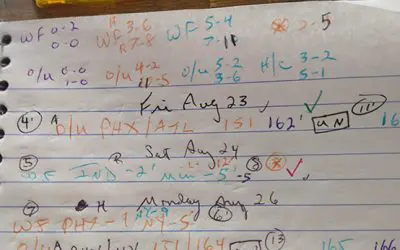 WF 0-2 H 3-6 WF 5-4 5
0-0 WF R 7-8 7-11
o/u 0-0 o/u 4-2 o/u 5-2 H/C 3-2
1-0 11-5 3-6 5-1
Fri Aug 23,
4 A o/u PHX/ATL 151 162' UN 11' 16
R Sat Aug 24 L-12
5 WF IND -2' Min -5' -5 8
H Monday Aug 26
WF PHX -1 NY-5' NY-9 6
151/164 13 165 166